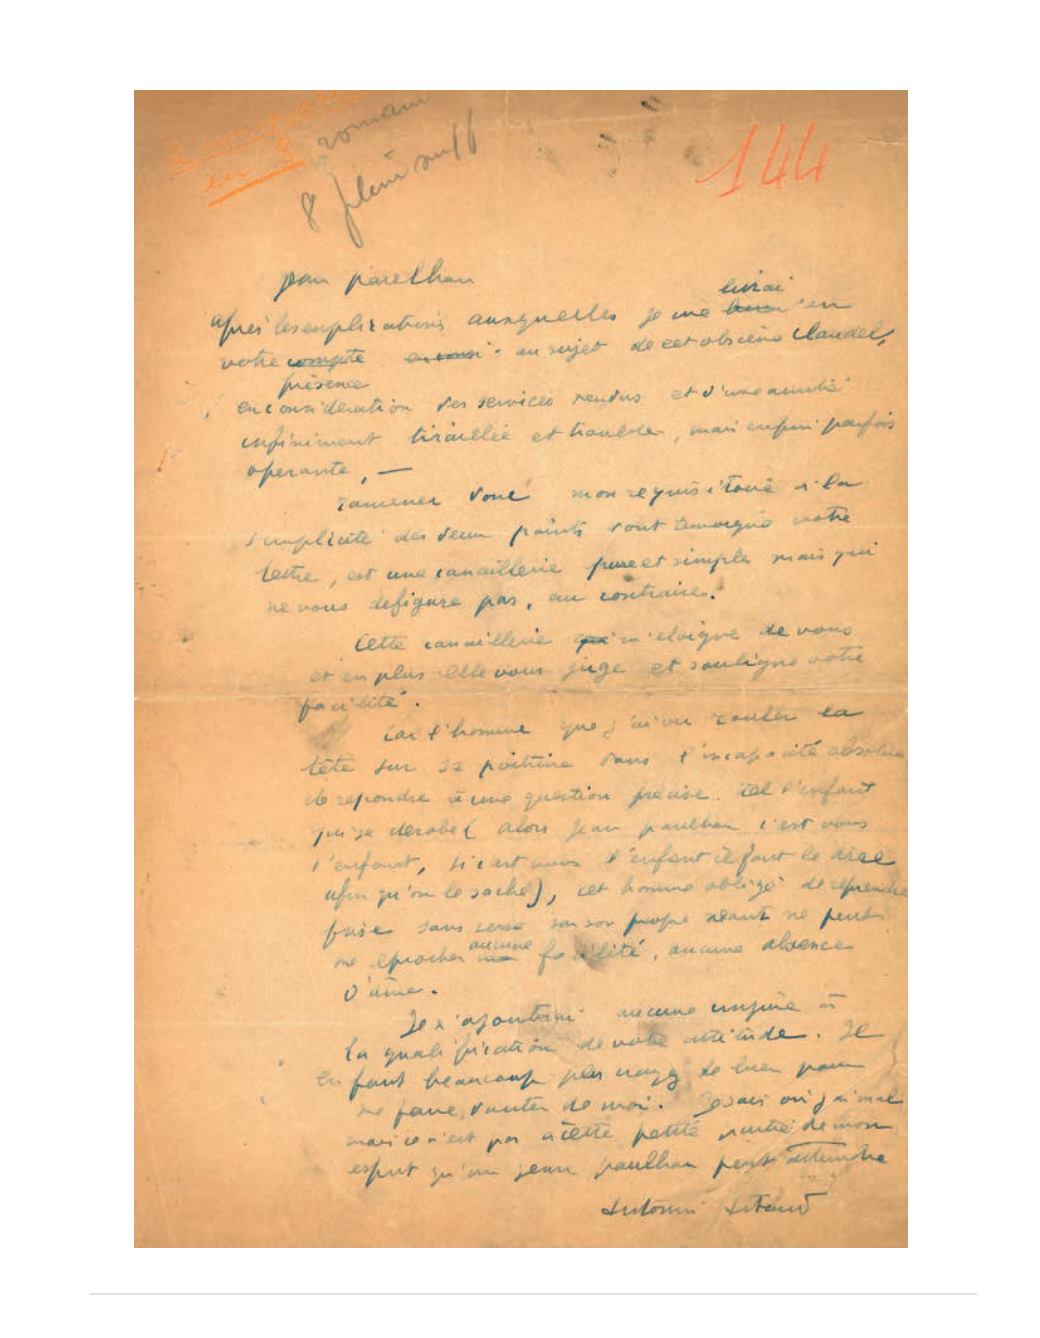 romain
8 plein sur 16
144
Jean Paulhan
livrai
après les explications auxquelles je me en
votre compte au sujet de cet obscène Claudel,
présence
en considération des services rendus et d'une amitié
infiniment tiraillée et troublée, mais enfin parfois
opérante, —
ramener donc mon requisitoire à la
simplicité des deux points dont temoigne votre
lettre, est une canaillerie pure et simple mais qui
ne vous defigure pas, au contraire.
Cette canaillerie qui m'eloigne de vous
et en plus elle vous juge et souligne votre
facilité.
Car l'homme que j'ai vu rouler la
tête sur sa poitrine dans l'incapacité absolue
de repondre à une question precise. tel l'enfant
qui se derobe ( alors Jean Paulhan c'est vous
l'enfant, si c'est vous l'enfant il faut le dire
afin qu'on le sache), cet homme obligé de reprendre
sans sur son propre néant ne peut
aucune
me reprocher facilité, aucune absence
d'âme.
Je n'ajouterai aucune injure à
la qualification de votre attitude. Il
en faut beaucoup plus croyez le bien pour
me faire douter de moi. Je sais où j'ai mal
mais ce n'est pas à cette petite partie de mon
esprit qu'un Jean Paulhan peut atteindre
Antonin Artaud